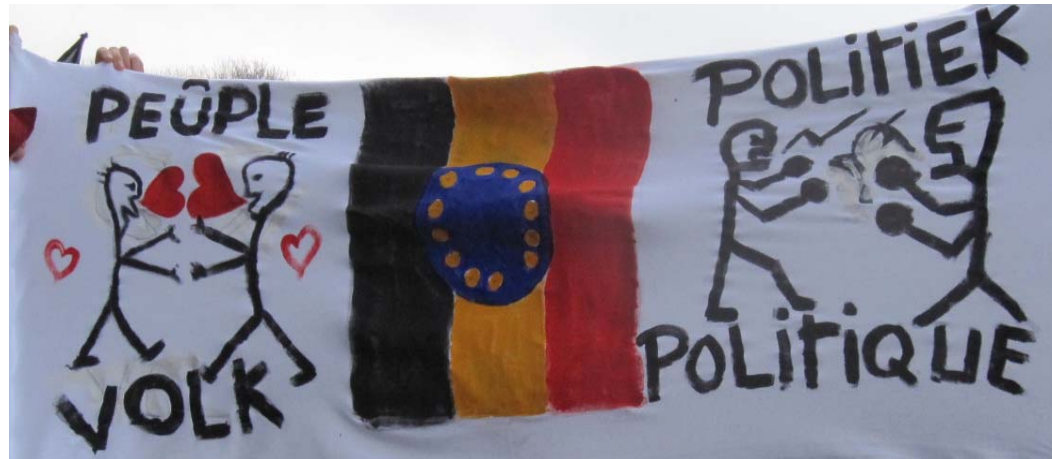 PEÛPLE
VOLK
POLITIEK
POLITIQUE